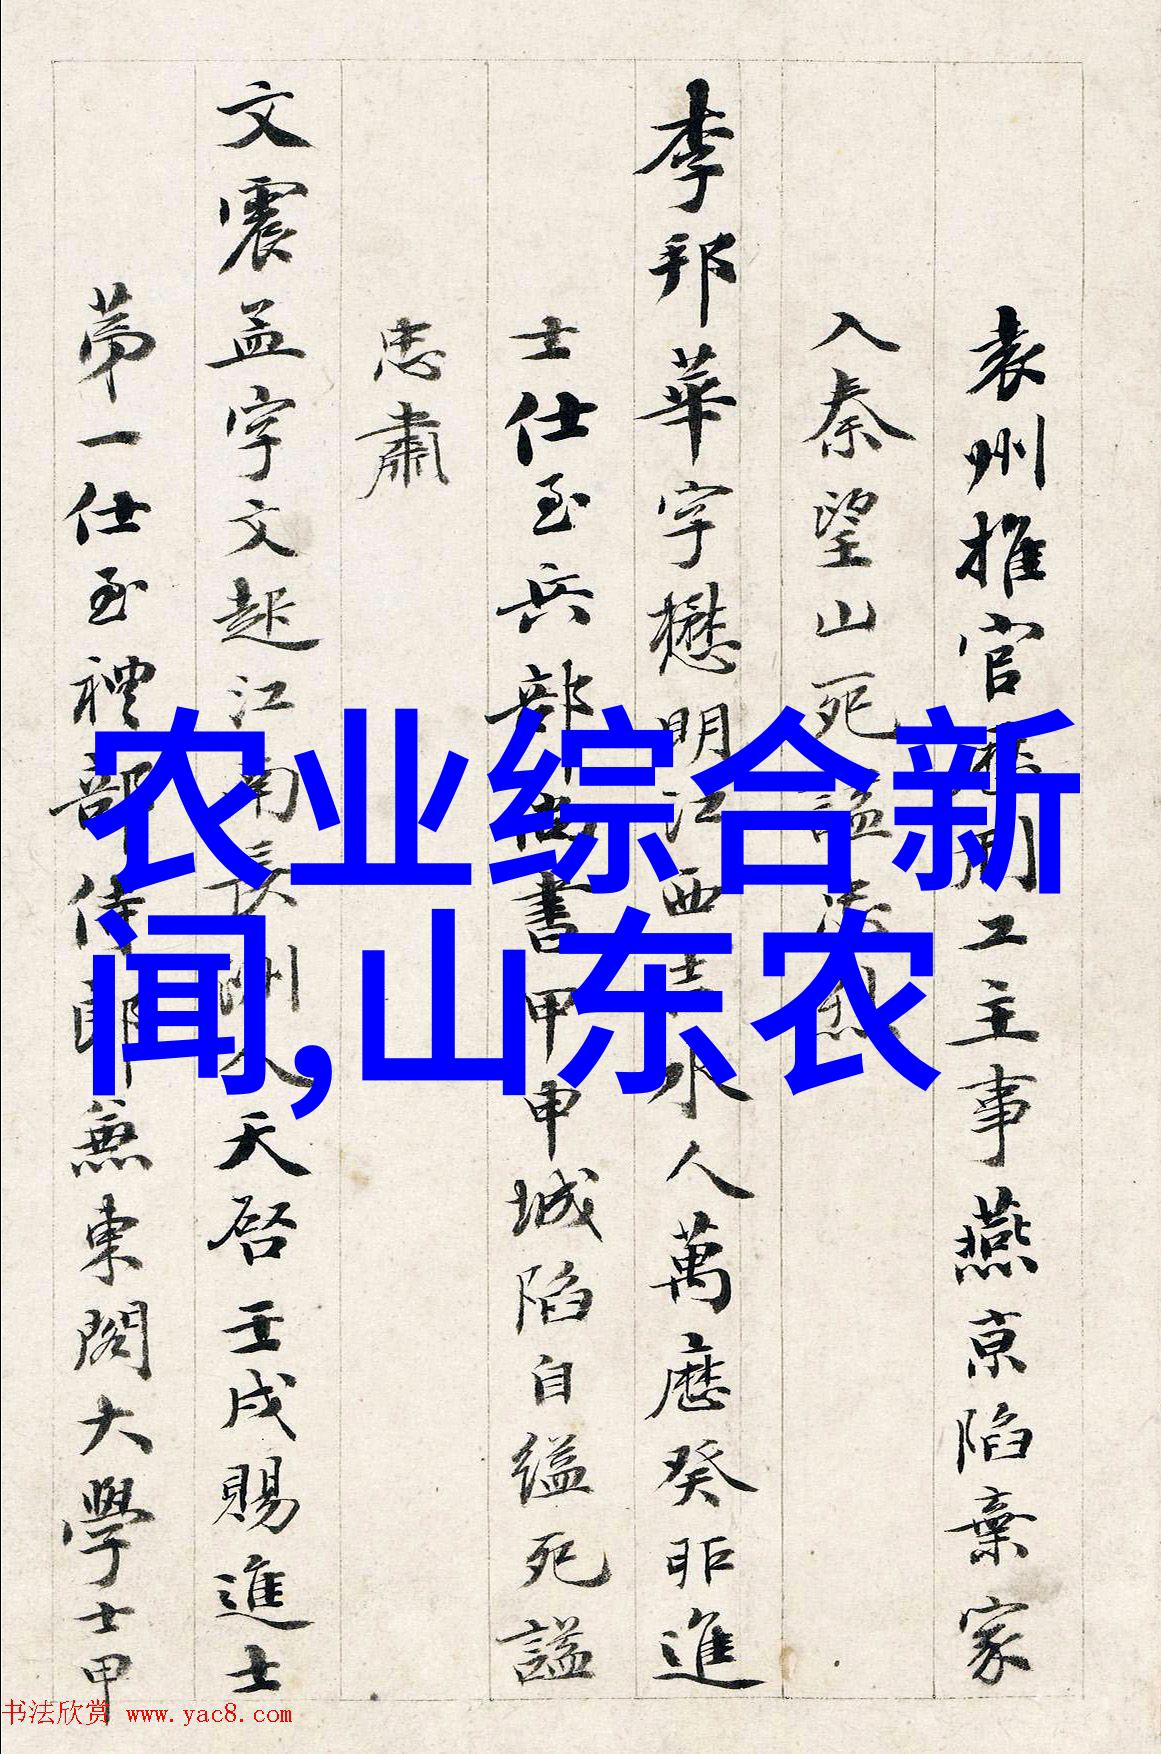 袁州推官歷周工主事燕京陷棄家
入秦望山死謚忠烈
李邦華字懋明江西吉水人萬曆癸卯進
士仕至兵部尚書甲申城陷自縊死謚
忠肅
文震孟字文起江南長洲人天啓壬戌賜進士
第一仕至禮部侍郎兼東閣大學士甲
农业综合新
闻,山东农
书法欣赏 www.yac8.com